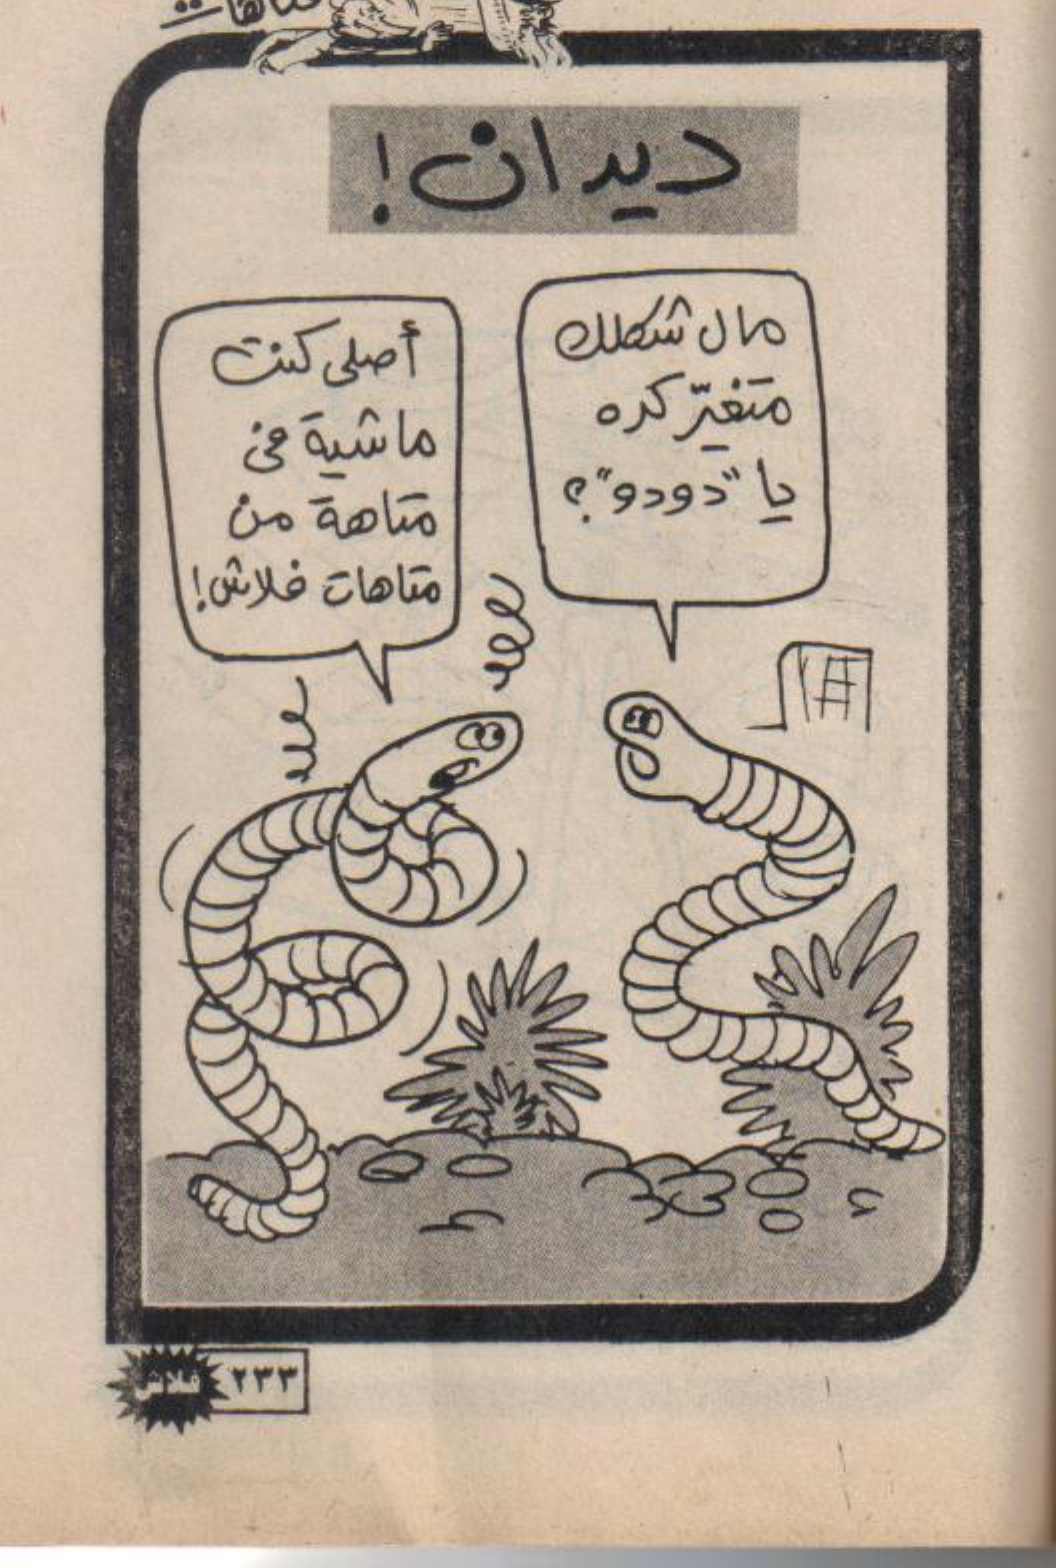 ديدان!
مال شكلك
متغيّر كده
يا "دودو"؟
أصلى كنت
ماشية فى
متاهة من
متاهات فلاش!
٢٣٣